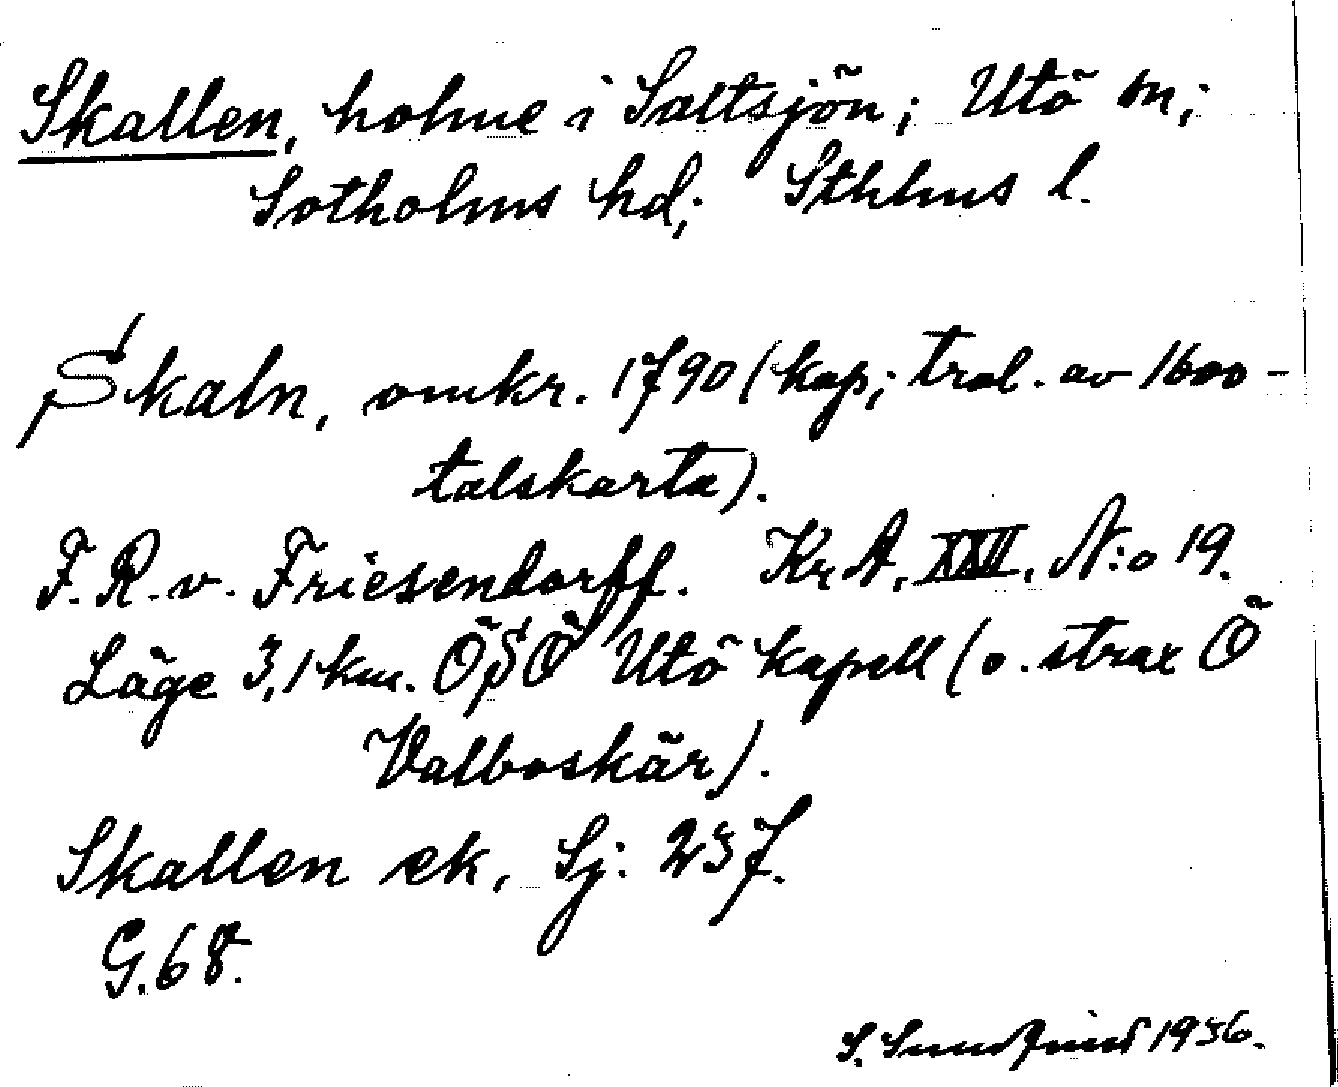 Skallen, holme i Saltsjön; Utö sn;
Sotholms hd; Sthlms l.
Skaln, omkr. 1790 (kop; trol. av 1600-
talskarta).
F. R. v. Friesendorff. Kr A, XXII, N:o 19.
Läge 3,1 km. ÖSÖ Utö kapell (o. strax Ö
Valboskär).
Skallen ek, Sj. 237.
G. 68.
S. 1936.